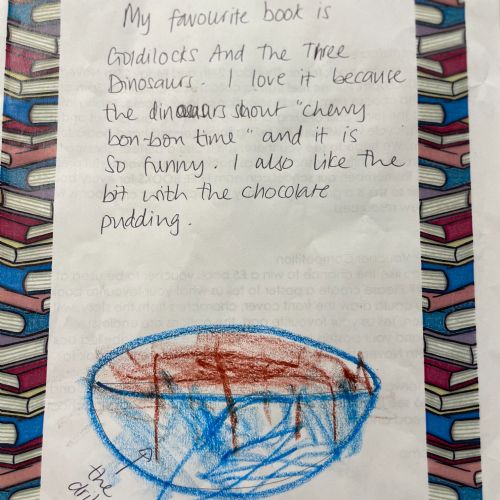 My favourite book is
Goldilocks And The Three
Dinosaurs. I love it because
the dinosaurs shout "chewy
bon-bon time" and it is
so funny. I also like the
bit with the chocolate
pudding.
the